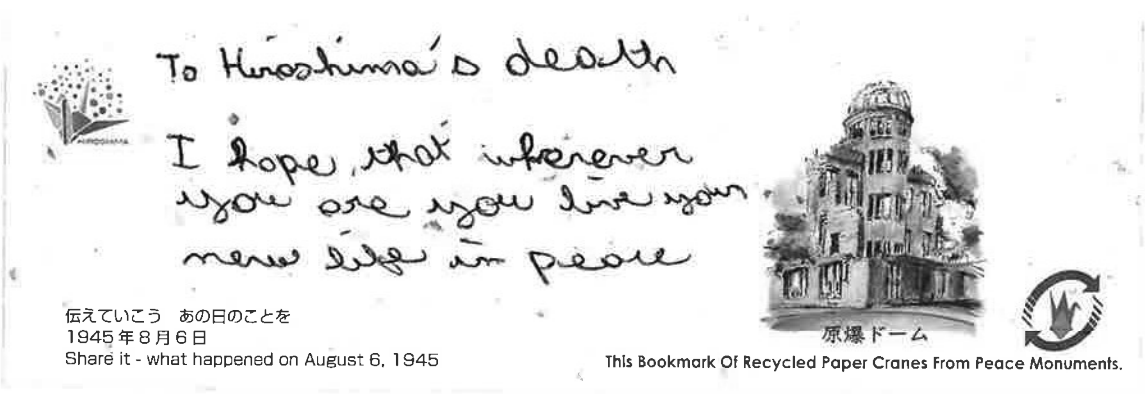 To Hiroshima's death
HIROSHIMA
I hope, that wherever
you are you live your
new life in peace
伝えていこう　あの日のことを
1945年8月6日
Share it - what happened on August 6, 1945
原爆ドーム
This Bookmark Of Recycled Paper Cranes From Peace Monuments.